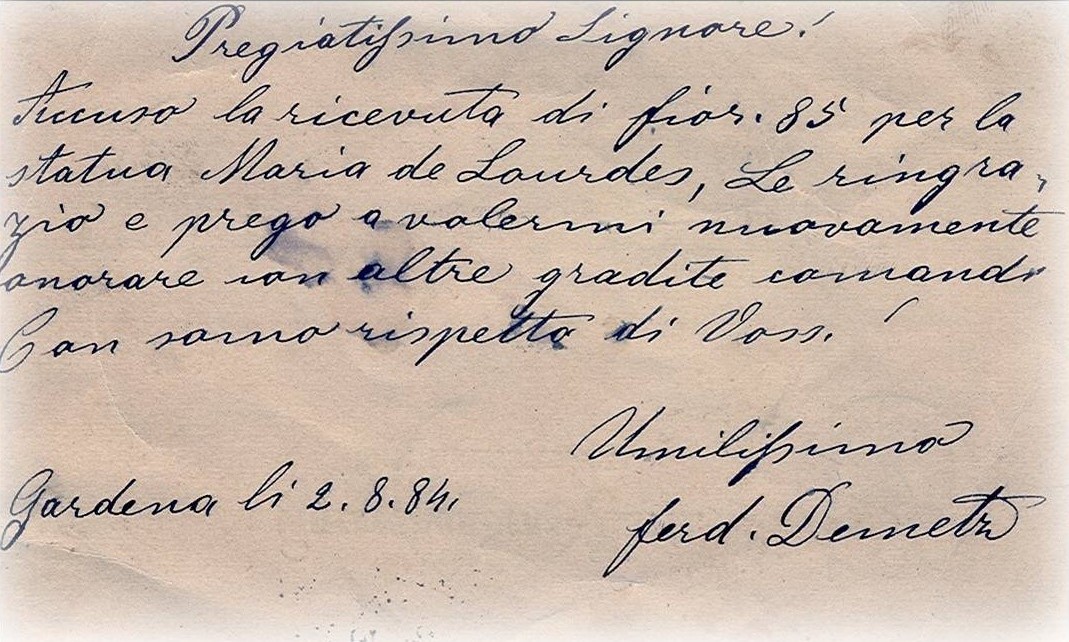 Pregiatissimo Signore!
Accuso la ricevuta di fior. 85 per la
statua Maria de Lourdes, Le ringra-
zio e prego a volermi nuovamente
onorare con altre gradite comandi
Con somo rispetto di Voss.
Umilissimo
Gardena li 2. 8. 84.
ferd. Demetz